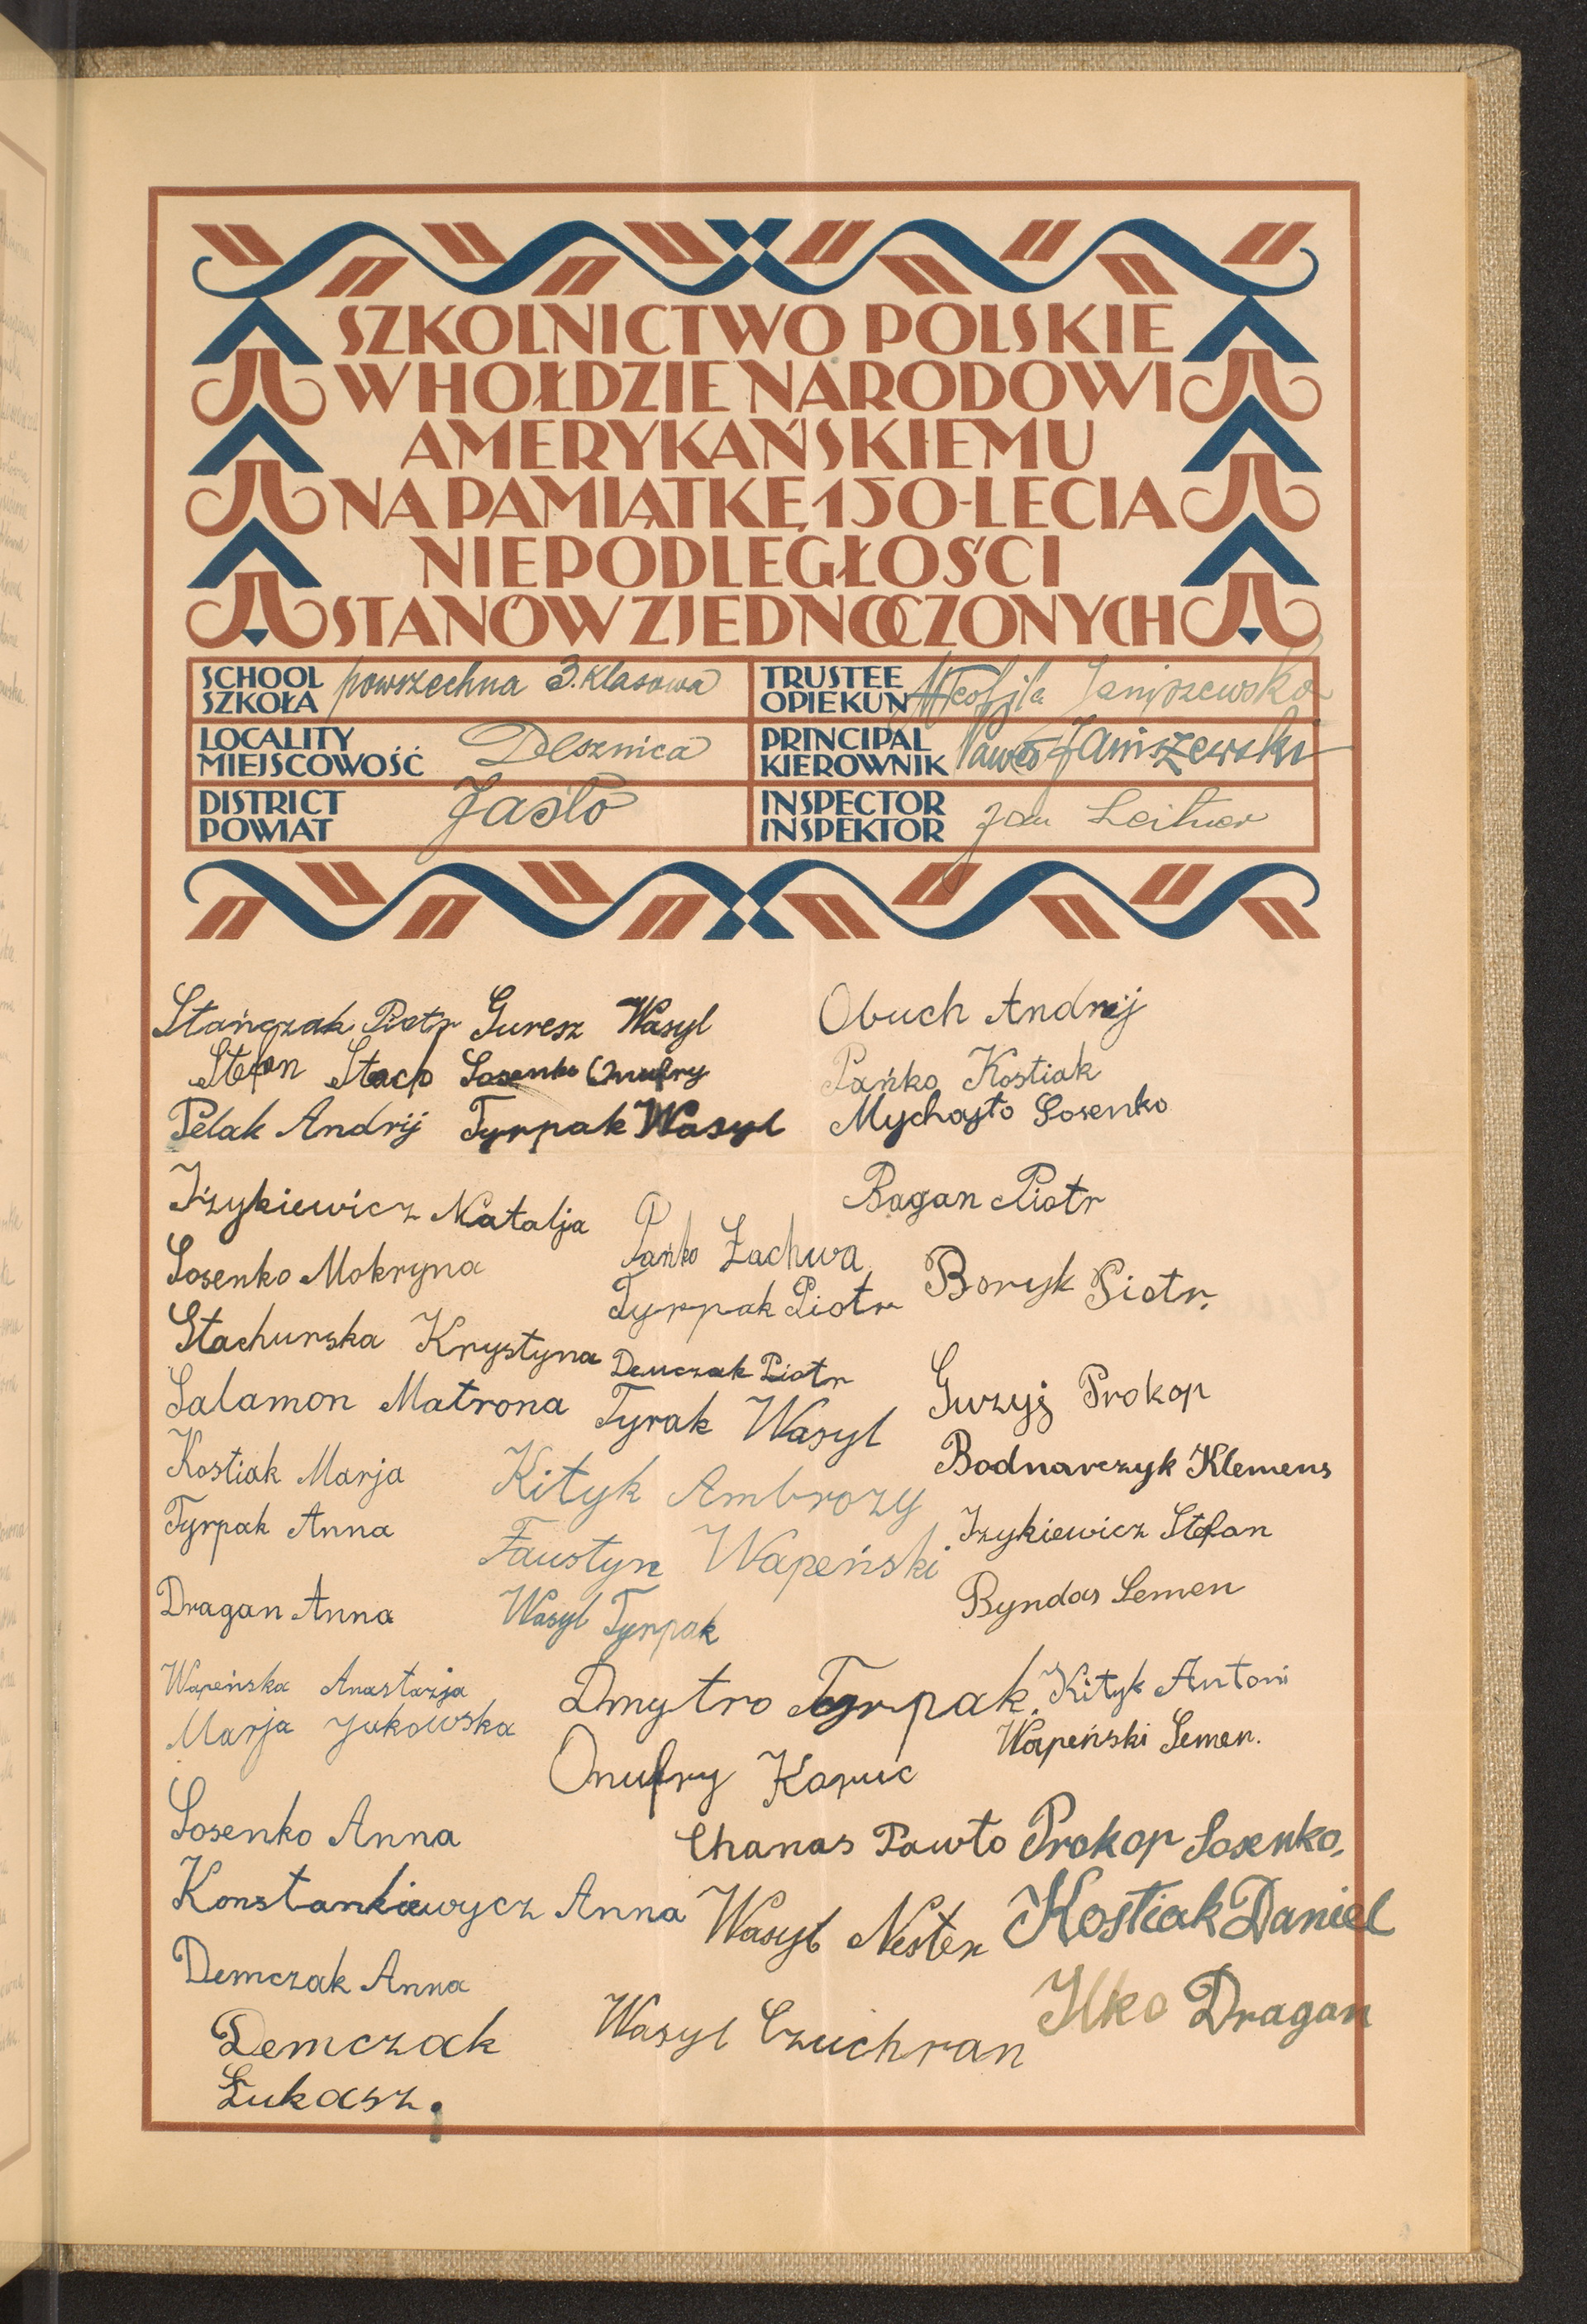 SZKOLNICTWO POLSKIE
W HOŁDZIE NARODOWI
AMERYKAŃSKIEMU
NA PAMIĄTKĘ 150-LECIA
NIEPODLEGŁOŚCI
STANÓW ZJEDNOCZONYCH
SCHOOL
SZKOŁA
powszechna 3. klasowa
TRUSTEE
OPIEKUN
Teofila Janiszewska
LOCALITY
MIEJSCOWOŚĆ
Desznica
PRINCIPAL
KIEROWNIK
Paweł Janiszewski
DISTRICT
POWIAT
Jasło
INSPECTOR
INSPEKTOR
Jan Leitner
Stańczak Piotr
Stefan Stach
Pelak Andrij
Guresz Wasyl
Sosenko Onufry
Tyrpak Wasyl
Obuch Andrij
Pańko Kostiak
Mychajło Sosenko
Bagan Piotr
Iżykiewicz Natalja
Sosenko Mokryna
Stachurska Krystyna
Salamon Matrona
Kostiak Marja
Tyrpak Anna
Dragan Anna
Wapeńska Anastazja
Marja Jukowska
Sosenko Anna
Konstankiewycz Anna
Demczak Anna
Demczak
Łukasz.
Pańko Żachwa
Tyrpak Piotr
Demczak Piotr
Tyrak Wasyl
Kityk Ambrozy
Faustyn Wapeński
Wasyl Tyrpak
Dmytro Tyrpak.
Onufry Kapuc
Chanas Pawło
Wasyl Nester
Wasyl Czuchran
Boryk Piotr.
Guzyj Prokop
Bodnarczyk Klemens
Izykiewicz Stefan
Byndas Semen
Kityk Antoni
Wapeński Semen.
Prokop Sosenko.
Kostiak Daniel
Ilko Dragan